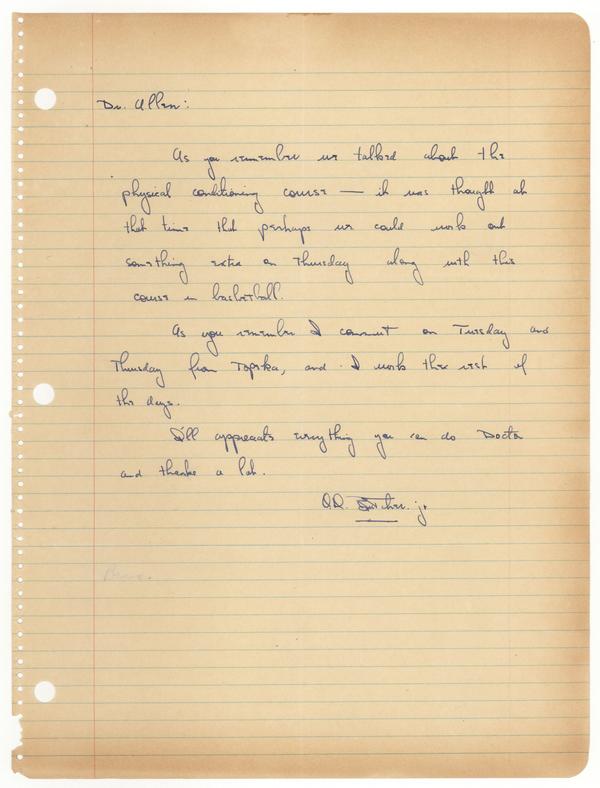 Dr. Allen:
As you remember we talked about the
physical conditioning course — it was thought at
that time that perhaps we could work out
something extra on Thursday along with this
course in basketball.
As you remember I commut on Tuesday and
Thursday from Topeka, and I work the rest of
the days.
I'll appreaate everything you can do Doctor
and thanks a lot.
jr.